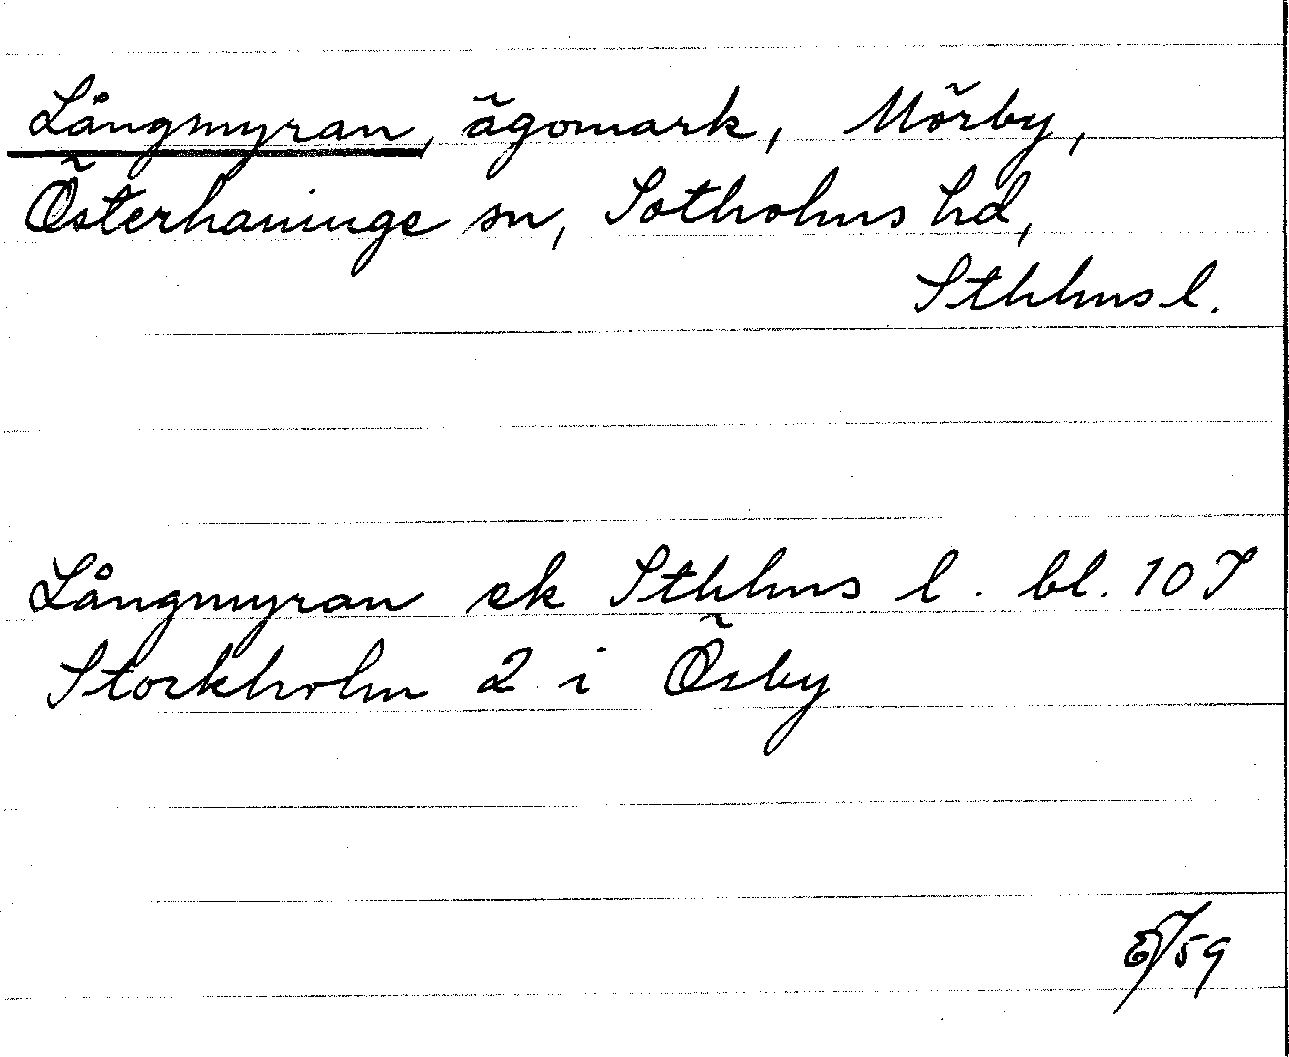 Långmyran, ägomark, Mörby,
Österhaninge sn, Sotholms hd,
Sthlms l.
Långmyran ek Sthlms l. bl. 10 I
Stockholm 2 i Ösby
/59